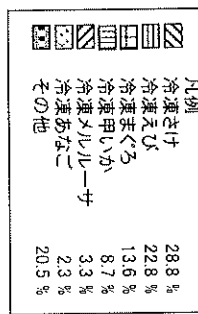 凡例
冷凍さけ 28.8 %
冷凍えび 22.8 %
冷凍まぐろ 13.6 %
冷凍甲いか 8.7 %
冷凍メルルーサ 3.3 %
冷凍あなご 2.3 %
その他 20.5 %